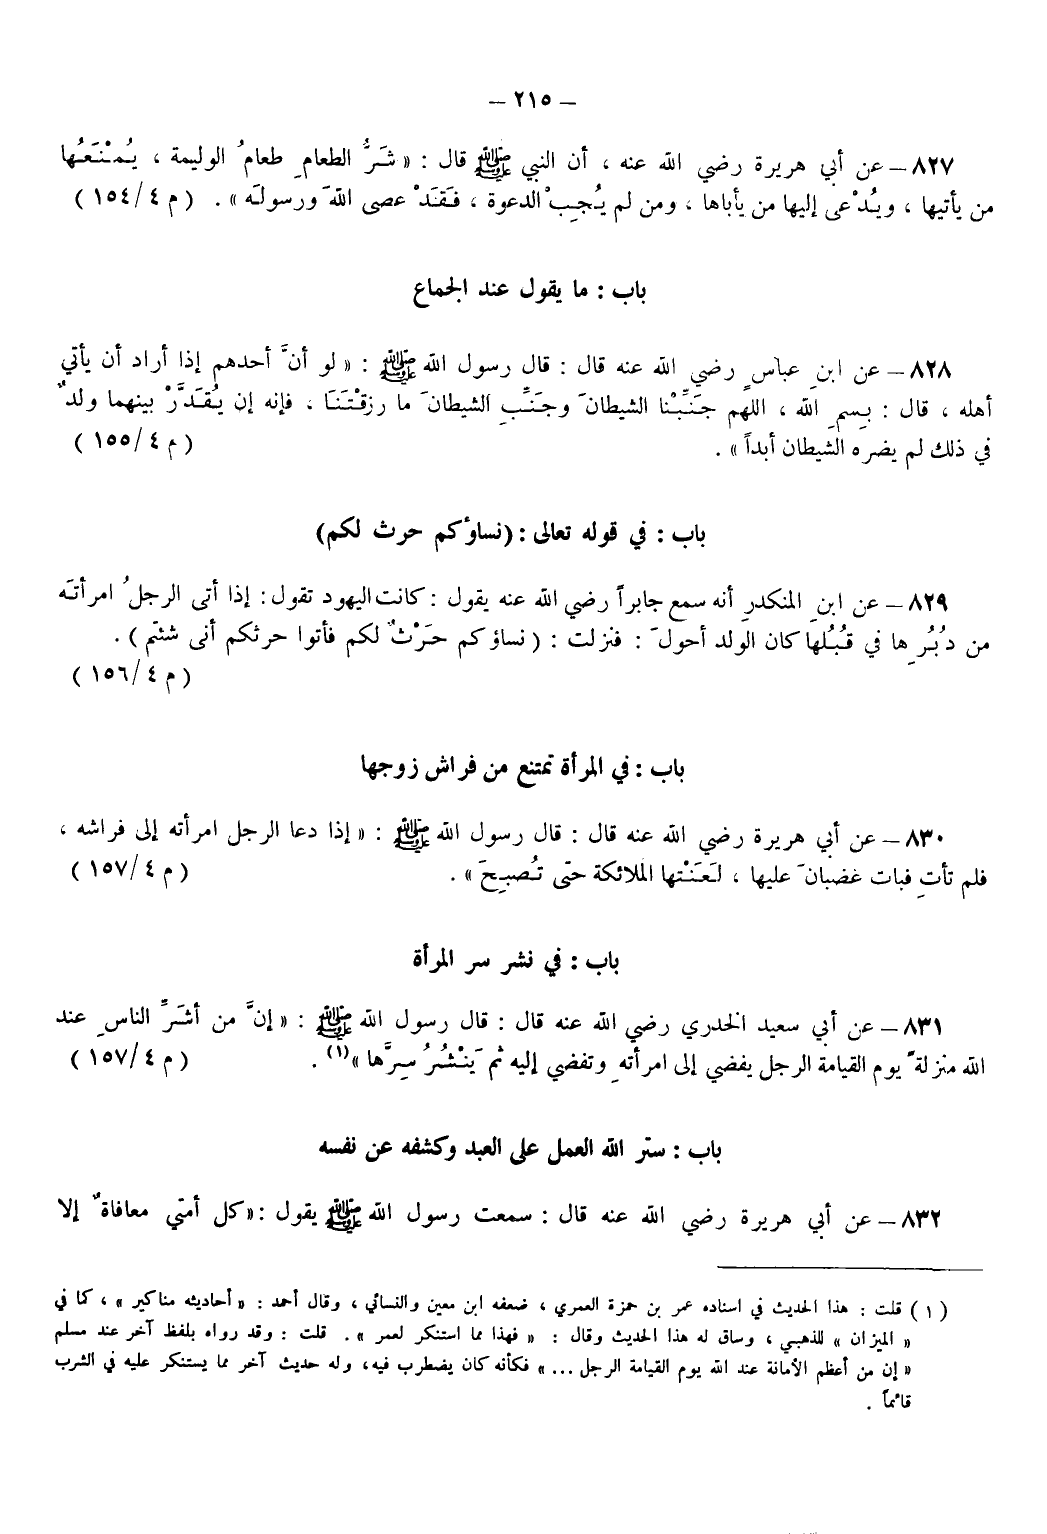 — ٢١٥ —
٨٢٧ — عن أبي هريرة رضي الله عنه ، أن النبي ﷺ قال : « شَرُّ الطعامِ طعامُ الوليمة ، يُمْنَعُها
من يأتيها ، ويُدْعى إليها من يأباها ، ومن لم يُجِبْ الدعوة ، فَقَدْ عصى اللهَ ورسولَه » . ( م ٤/١٥٤ )
باب : ما يقول عند الجماع
٨٢٨ — عن ابنِ عباسٍ رضي الله عنه قال : قال رسول الله ﷺ : « لو أنَّ أحدهم إذا أراد أن يأتي
أهله ، قال : بِسمِ الله ، اللهم جَنِّبْنا الشيطانَ وجَنِّبِ الشيطانَ ما رزقْتَنَا ، فإنه إن يُقَدَّرْ بينهما ولدٌ
في ذلك لم يضره الشيطان أبداً » . ( م ٤/١٥٥ )
باب : في قوله تعالى : (نساؤكم حرث لكم)
٨٢٩ — عن ابنِ المنكدرِ أنه سمع جابراً رضي الله عنه يقول : كانت اليهود تقول : إذا أتى الرجلُ امرأتَه
من دُبُرِها في قُبُلها كان الولد أحولَ : فنزلت : ( نساؤكم حَرْثٌ لكم فأتوا حرثكم أنى شئتم ) .
( م ٤/١٥٦ )
باب : في المرأة تمتنع من فراش زوجها
٨٣٠ — عن أبي هريرة رضي الله عنه قال : قال رسول الله ﷺ : « إذا دعا الرجل امرأته إلى فراشه ،
فلم تأتِ فبات غضبانَ عليها ، لَعَنَتْها الملائكة حتى تُصبِحَ » . ( م ٤/١٥٧ )
باب : في نشر سر المرأة
٨٣١ — عن أبي سعيد الخدري رضي الله عنه قال : قال رسول الله ﷺ : « إنَّ من أشَرِّ الناسِ عند
الله منزلةً يوم القيامة الرجل يفضي إلى امرأتهِ وتفضي إليه ثم يَنْشُرُ سِرَّها »(١) . ( م ٤/١٥٧ )
باب : ستر الله العمل على العبد وكشفه عن نفسه
٨٣٢ — عن أبي هريرة رضي الله عنه قال : سمعت رسول الله ﷺ يقول : « كل أمتي معافاةٌ إلا
(١) قلت : هذا الحديث في اسناده عمر بن حمزة العمري ، ضعفه ابن معين والنسائي ، وقال أحمد : « أحاديثه مناكير » ، كما في
« الميزان » للذهبي ، وساق له هذا الحديث وقال : « فهذا مما استنكر لعمر » . قلت : وقد رواه بلفظ آخر عند مسلم
« إن من أعظم الأمانة عند الله يوم القيامة الرجل ... » فكأنه كان يضطرب فيه ، وله حديث آخر مما يستنكر عليه في الشرب
قائماً .